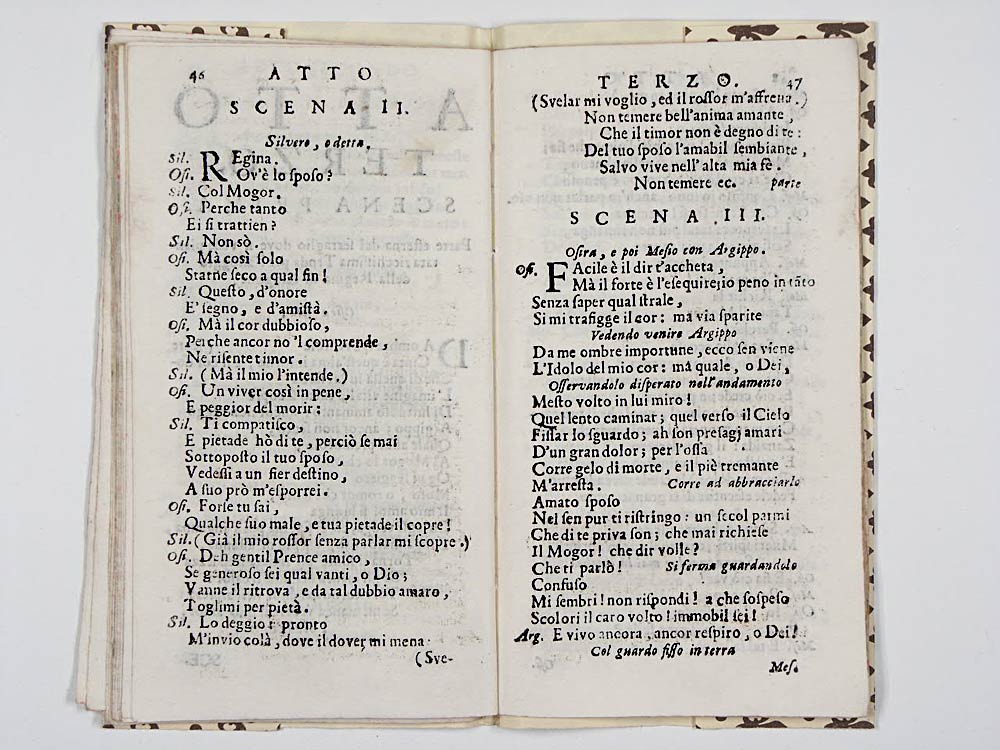 46
ATTO
SCENA II.
Silvero, e detta.
Sil. REgina.
Osi. Ov'è lo sposo?
Sil. Col Mogor.
Osi. Perche tanto
Ei si trattien?
Sil. Non sò.
Osi. Mà così solo
Starne seco a qual fin!
Sil. Questo, d'onore
E' segno, e d'amistà.
Osi. Mà il cor dubbioso,
Perche ancor no 'l comprende,
Ne risente timor.
Sil. (Mà il mio l'intende.)
Osi. Un viver così in pene,
E peggior del morir:
Sil. Ti compatisco,
E pietade hò di te, perciò se mai
Sottoposto il tuo sposo,
Vedessi a un fier destino,
A suo prò m'esporrei.
Osi. Forse tu sai,
Qualche suo male, e tua pietade il copre!
Sil. (Già il mio rossor senza parlar mi scopre.)
Osi. Deh gentil Prence amico,
Se generoso sei qual vanti, o Dio;
Vanne il ritrova, e da tal dubbio amaro,
Toglimi per pietà.
Sil. Lo deggio: pronto
M'invio colà, dove il dover mi mena
(Sve-
TERZO.
47
(Svelar mi voglio, ed il rossor m'affrena.)
Non temere bell'anima amante,
Che il timor non è degno di te:
Del tuo sposo l'amabil sembiante,
Salvo vive nell'alta mia fè.
Non temere ec. parte
SCENA III.
Osira, e poi Mesio con Argippo.
Osi. FAcile è il dir t'accheta,
Mà il forte è l'esequire; io peno in tãto
Senza saper qual strale,
Si mi trafigge il cor: mà via sparite
Vedendo venire Argippo
Da me ombre importune, ecco sen viene
L'Idolo del mio cor: mà quale, o Dei,
Osservandolo disperato nell'andamento
Mesto volto in lui miro!
Quel lento caminar; quel verso il Cielo
Fissar lo sguardo; ah son presagj amari
D'un gran dolor; per l'ossa
Corre gelo di morte, e il piè tremante
M'arresta. Corre ad abbracciarlo
Amato sposo
Nel sen pur ti ristringo: un secol parmi
Che di te priva son; che mai richiese
Il Mogor! che dir volle?
Che ti parlò! Si ferma guardandolo
Confuso
Mi sembri! non rispondi! a che sospeso
Scolori il caro volto! immobil sei!
Arg. E vivo ancora, ancor respiro, o Dei!
Col guardo fisso in terra
Mes.